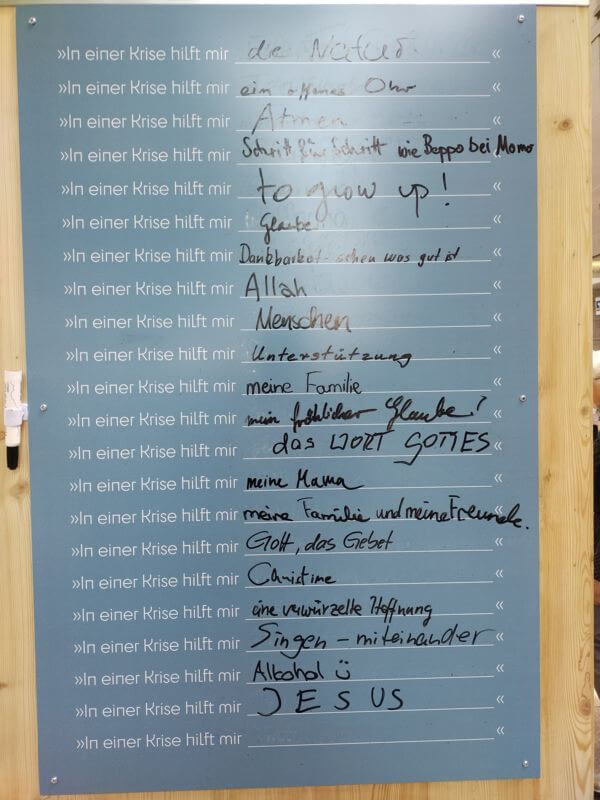 »In einer Krise hilft mir die Natur «
»In einer Krise hilft mir ein offenes Ohr «
»In einer Krise hilft mir Atmen «
»In einer Krise hilft mir Schritt für Schritt wie Beppo bei Momo «
»In einer Krise hilft mir to grow up! «
»In einer Krise hilft mir Glaube «
»In einer Krise hilft mir Dankbarkeit - sehen was gut ist «
»In einer Krise hilft mir Allah «
»In einer Krise hilft mir Menschen «
»In einer Krise hilft mir Unterstützung «
»In einer Krise hilft mir meine Familie «
»In einer Krise hilft mir mein fröhlicher Glaube! «
»In einer Krise hilft mir das WORT GOTTES «
»In einer Krise hilft mir meine Mama «
»In einer Krise hilft mir meine Familie und meine Freunde. «
»In einer Krise hilft mir Gott, das Gebet «
»In einer Krise hilft mir Christine «
»In einer Krise hilft mir eine verwurzelte Hoffnung «
»In einer Krise hilft mir Singen - miteinander «
»In einer Krise hilft mir Alkohol ü «
»In einer Krise hilft mir JESUS «
»In einer Krise hilft mir «